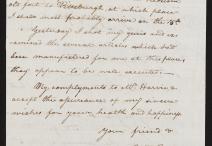 ate fort to Pittsburgh, at which place
I shall most probably arrive on the 15th.
Yesterday I shot my guns and ex-
amined the several articles which have
been manufactured for me at this place;
they appear to be well executed.
My compliments to Mrs. Harris, &
accept the assurance of my sincere
wishes for your health and happiness.
Your friend &